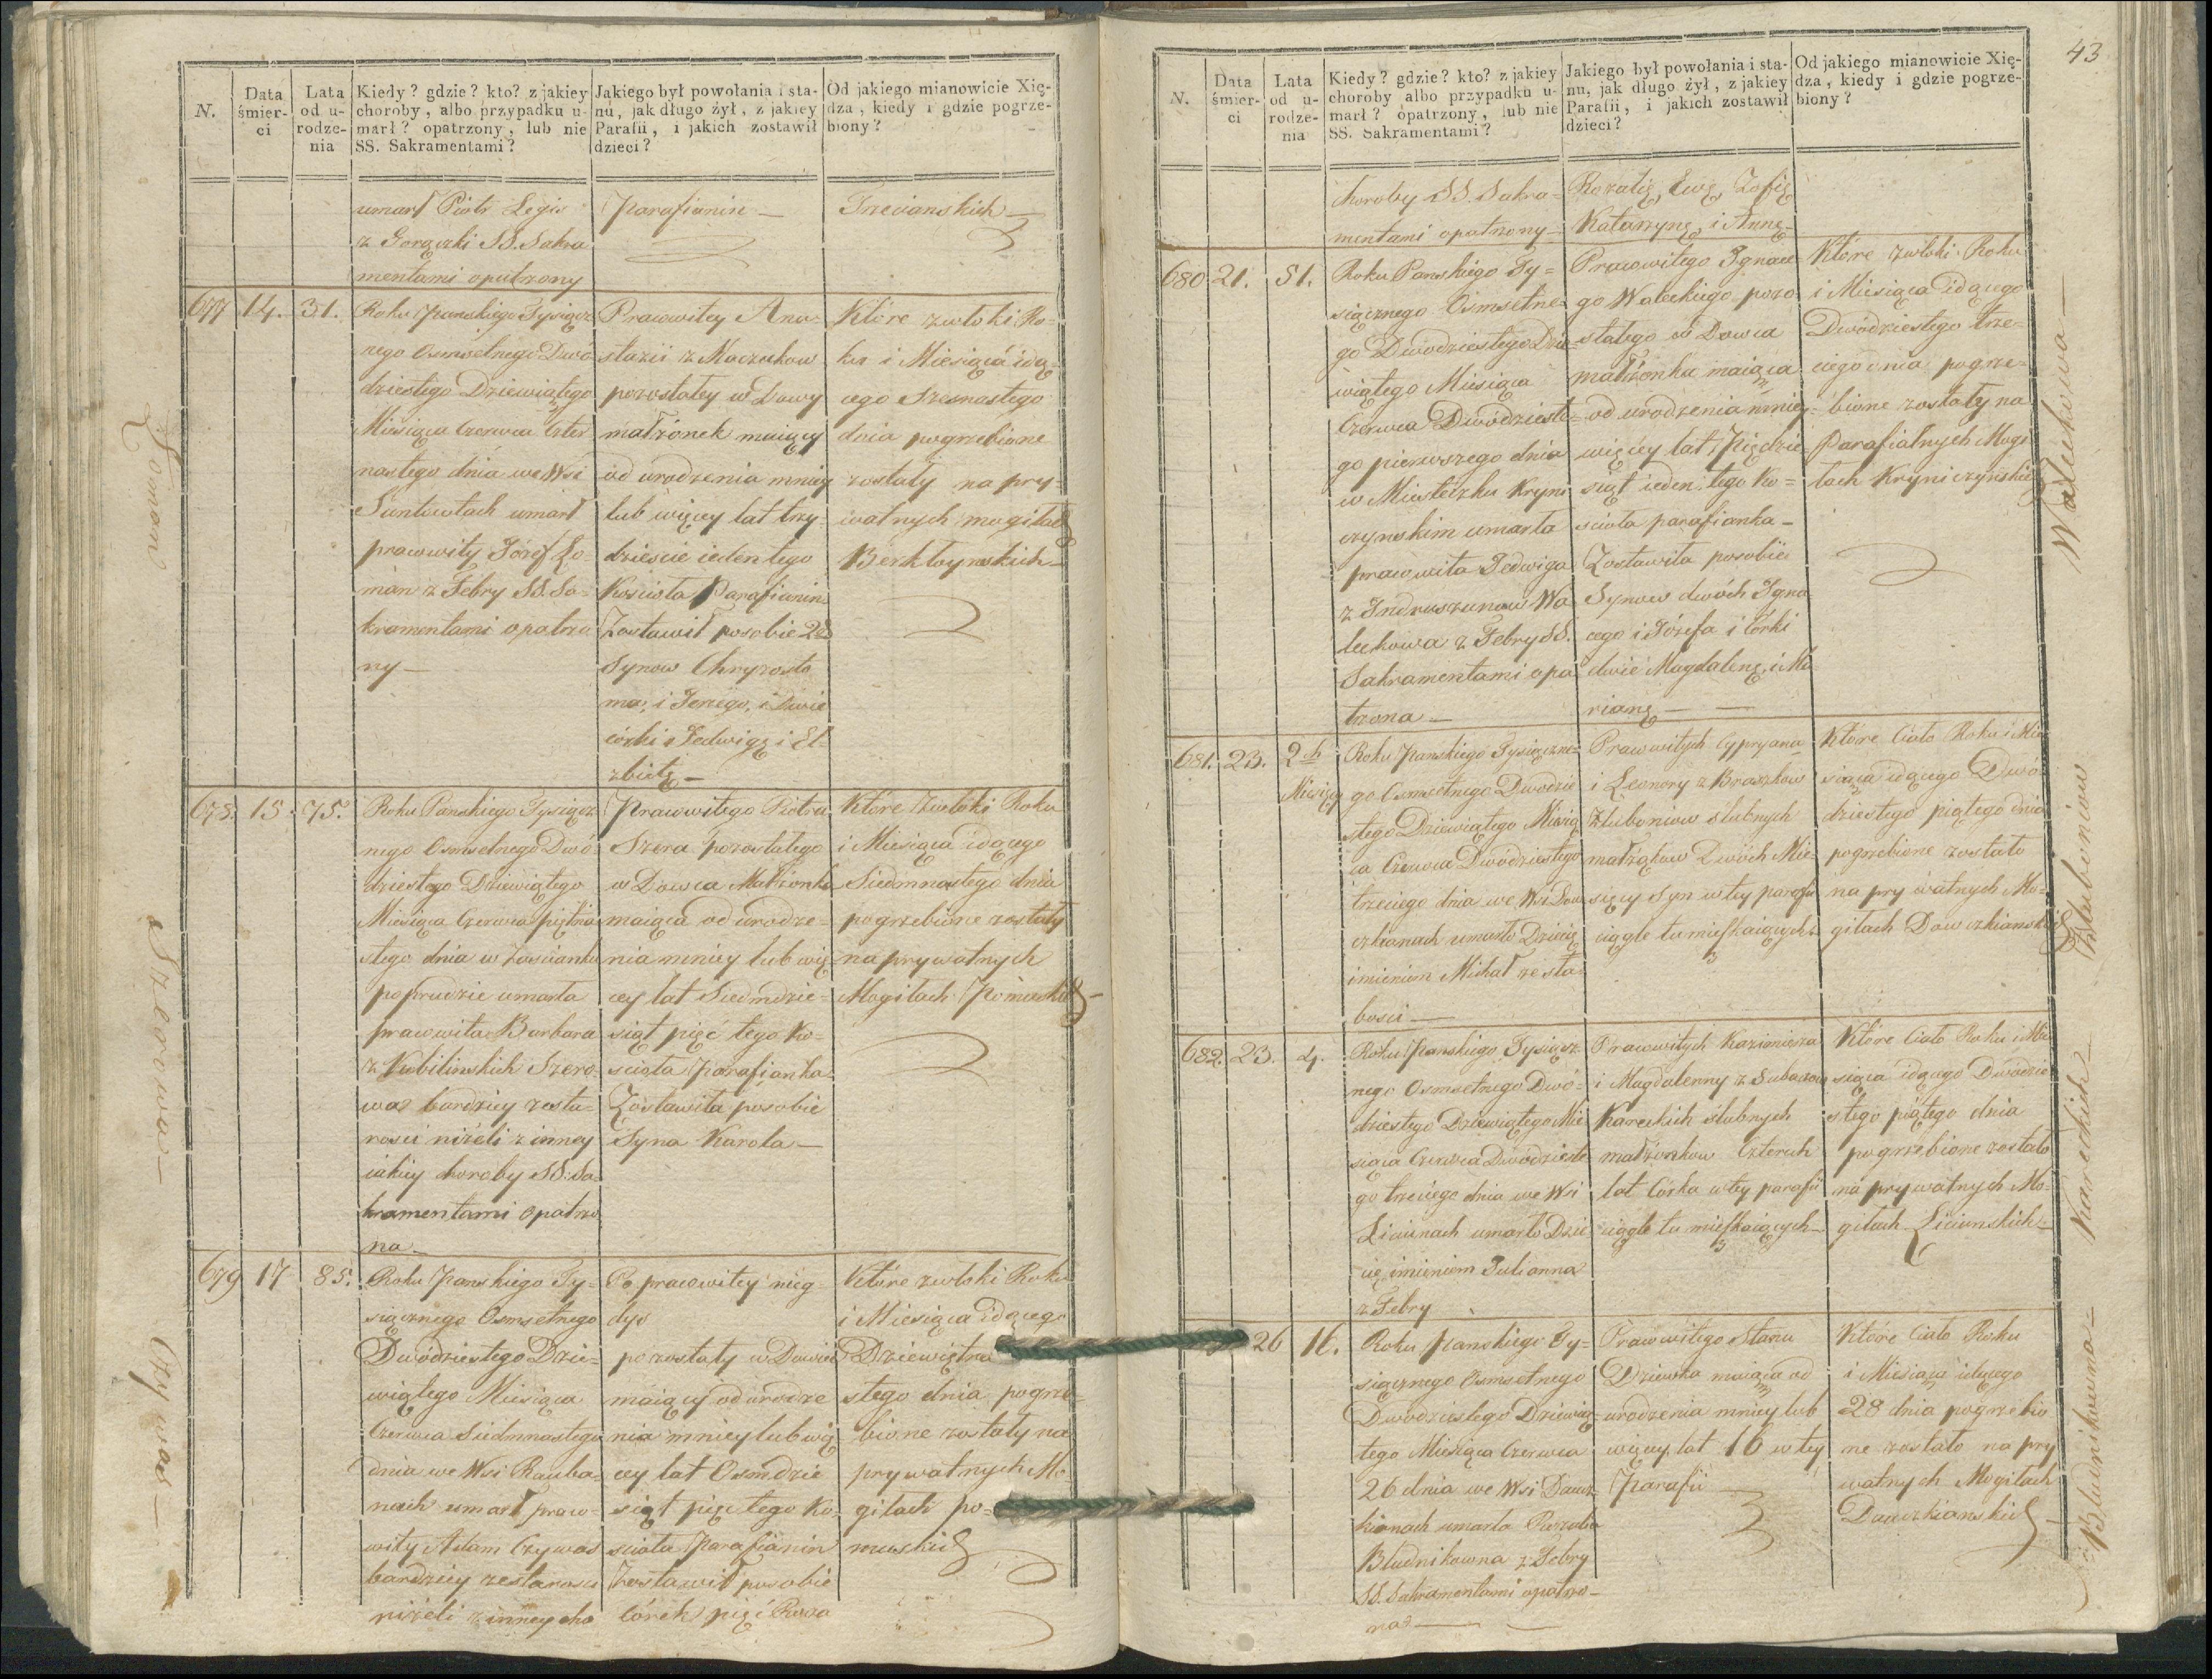 N.
Data śmier-ci
Lata od u-rodze-nia
Kiedy? gdzie? kto? z jakiey
choroby, albo przypadku u-
marł? opatrzony, lub nie
SS. Sakramentami?
Jakiego był powołania i sta-
nu, jak długo żył, z jakiey
Parafii, i jakich zostawił
dzieci?
Od jakiego mianowicie Xię-
dza, kiedy i gdzie pogrze-
biony?
umarł Piotr Legis
z Gorączki SS. Sakra
mentami opatrzony
Parafianin
Trecianskich
677
14.
31.
Roku Panskiego Tysiącz
nego Osmsetnego Dwó
dziestego Dziewiątego
Miesiąca Czerwca Czter
nastego dnia we Wsi
Suntowtach umarł
prawowity Józef Ło-
man z Febry SS. Sa-
kramentami opatrzo
ny
Prawowitey Ana-
stazii z Maczukow
pozostałey w Dowy
małżonek maiący
od urodzenia mniey
lub więcey lat trzy-
dzieście ieden tego
Kościoła Parafianin
Zostawił posobie 2ch
Synow Chryzosto
ma, i Jerzego, i Dwie
córki Jedwigę i El-
zbietę
Które zwłoki Ro-
ku i Miesiąca idą-
cego Szesnastego
dnia pogrzebione
zostały na pry-
watnych mogiłach
Berktoynskich
Łoman
678.
15.
75.
Roku Panskiego Tysiącz
nego Osmsetnego Dwó
dziestego Dziewiątego
Miesiąca Czerwca piętna
stego dnia w Zaścianku
poprudzie umarła
prawowita Barbara
z Kubilinskich Szero
wa bardziey zesta-
rosci niżeli z inney
iakiey choroby SS. Sa-
kramentami opatrzo
na
Prawowitego Piotra
Szera pozostałego
w Dowca Małżonka
maiąca od urodze-
nia mniey lub wię
cey lat Siedmdzie-
siąt pięć tego Ko-
scioła Parafianka
Zostawiła posobie
Syna Karola
Które Zwłoki Roku
i Miesiąca idącego
Siedmnastego dnia
pogrzebione zostały
na prywatnych
Mogiłach
Szerowa
679
17
85.
Roku Panskiego Ty-
siącznego Osmsetnego
Dwódziestego Dzie-
wiątego Miesiąca
Czerwca Siedmnastego
dnia we Wsi Rauba-
nach umarł prawo-
wity Adam Czywas
bardziey zestarosci
niżeli z inney cho
Po prawowitey nieg-
dys
pozostały w Dowiec
maiący od urodze
nia mniey lub wię
cey lat Osmdzie
siąt pięc tego Ko-
scioła Parafianin
Zostawił posobie
Córek pięć Roza
Które zwłoki Roku
i Miesiąca idącego
Dziewiętna
stego dnia pogrze-
bione zostały na
prywatnych Mo-
giłach po-
Czywas
43
N.
Data śmier-ci
Lata od u-rodze-nia
Kiedy? gdzie? kto? z jakiey
choroby albo przypadku u-
marł? opatrzony, lub nie
SS. Sakramentami?
Jakiego był powołania i sta-
nu, jak długo żył, z jakiey
Parafii, i jakich zostawił
dzieci?
Od jakiego mianowicie Xię-
dza, kiedy i gdzie pogrze-
biony?
horoby SS. Sakra-
mentami opatrzony
Rozalię, Ewę, Zofię
Katarzynę, i Annę
680
21.
51.
Roku Panskiego Ty-
siącznego Osmsetne
go Dwódziestego Dzie
wiątego Miesiąca
Czerwca Dwódzieste-
go pierwszego dnia
w Miasteczku Kryni
czynskim umarła
prawowita Jedwiga
z Indruszunow Wa
leckowa z Febry SS.
Sakramentami opa
trzona
Prawowitego Ignace
go Waleckiego pozo
stałego w Dowca
małżonka maiąca
od urodzenia mniey
więcey lat Pięćdzie
siąt ieden tego Ko-
scioła parafianka
Zostawiła posobie
Synow dwóch Igna
cego i Józefa i Córki
dwie Magdalenę, i Ma
rianę
Które zwłoki Roku
i Miesiąca idącego
Dwódziestego trze-
ciego dnia pogrze-
bione zostały na
Parafialnych Mogi
łach Kryniczynskich
Waleckowa
681.
23.
2ch Miesięcy
Roku Panskiego Tysiączne
go Osmsetnego Dwodzie
stego Dziewiątego Miesią
ca Czerwca Dwódziestego
trzeciego dnia we Wsi Daw
czkianach umarło Dziecię
imieniem Michał ze sła
bosci
Prawowitych Cypryana
i Leonory z Braszkow
Złuboniow slubnych
małżąkow Dwóch Mie-
sięcy Syn w tey parafii
ciągle tu mieszkaiących
Które Ciało Roku i Mie
siąca idącego Dwó-
dziestego piątego dnia
pogrzebione zostało
na prywatnych Mo-
giłach Dawczkianskich
Złuboniow
682.
23.
4.
Roku Panskiego Tysiącz
nego Osmsetnego Dwó-
dziestego Dziewiątego Mie
siąca Czerwca Dwodzieste
go trzeciego dnia we Wsi
Liciunach umarło Dzie
cię imieniem Julianna
z Febry
Prawowitych Kazimierza
i Magdalenny z Subaczow
Kareckich slubnych
małżonkow Czterech
lat Córka w tey parafii
ciągle tu mieszkaiących
Które Ciało Roku i Mie
siąca idącego Dwódzie
stego piątego dnia
pogrzebione zostało
na prywatnych Mo-
giłach Liciunskich
Kareckich
26
16.
Roku Panskiego Ty-
siącznego Osmsetnego
Dwodziestego Dziewią-
tego Miesiąca Czerwca
26 dnia we Wsi Daucz-
kianach umarła Rozalia
Bludnikowna z Febry
SS. Sakramentami opatrzo-
na
Prawowitego Stanu
Dziewka maiąca od
urodzenia mniey lub
więcey lat 16 w tey
Parafii
Które Ciało Roku
i Miesiąca idącego
28 dnia pogrzebio
ne zostało na pry
watnych Mogiłach
Dauczkianskich
Bludnikowna